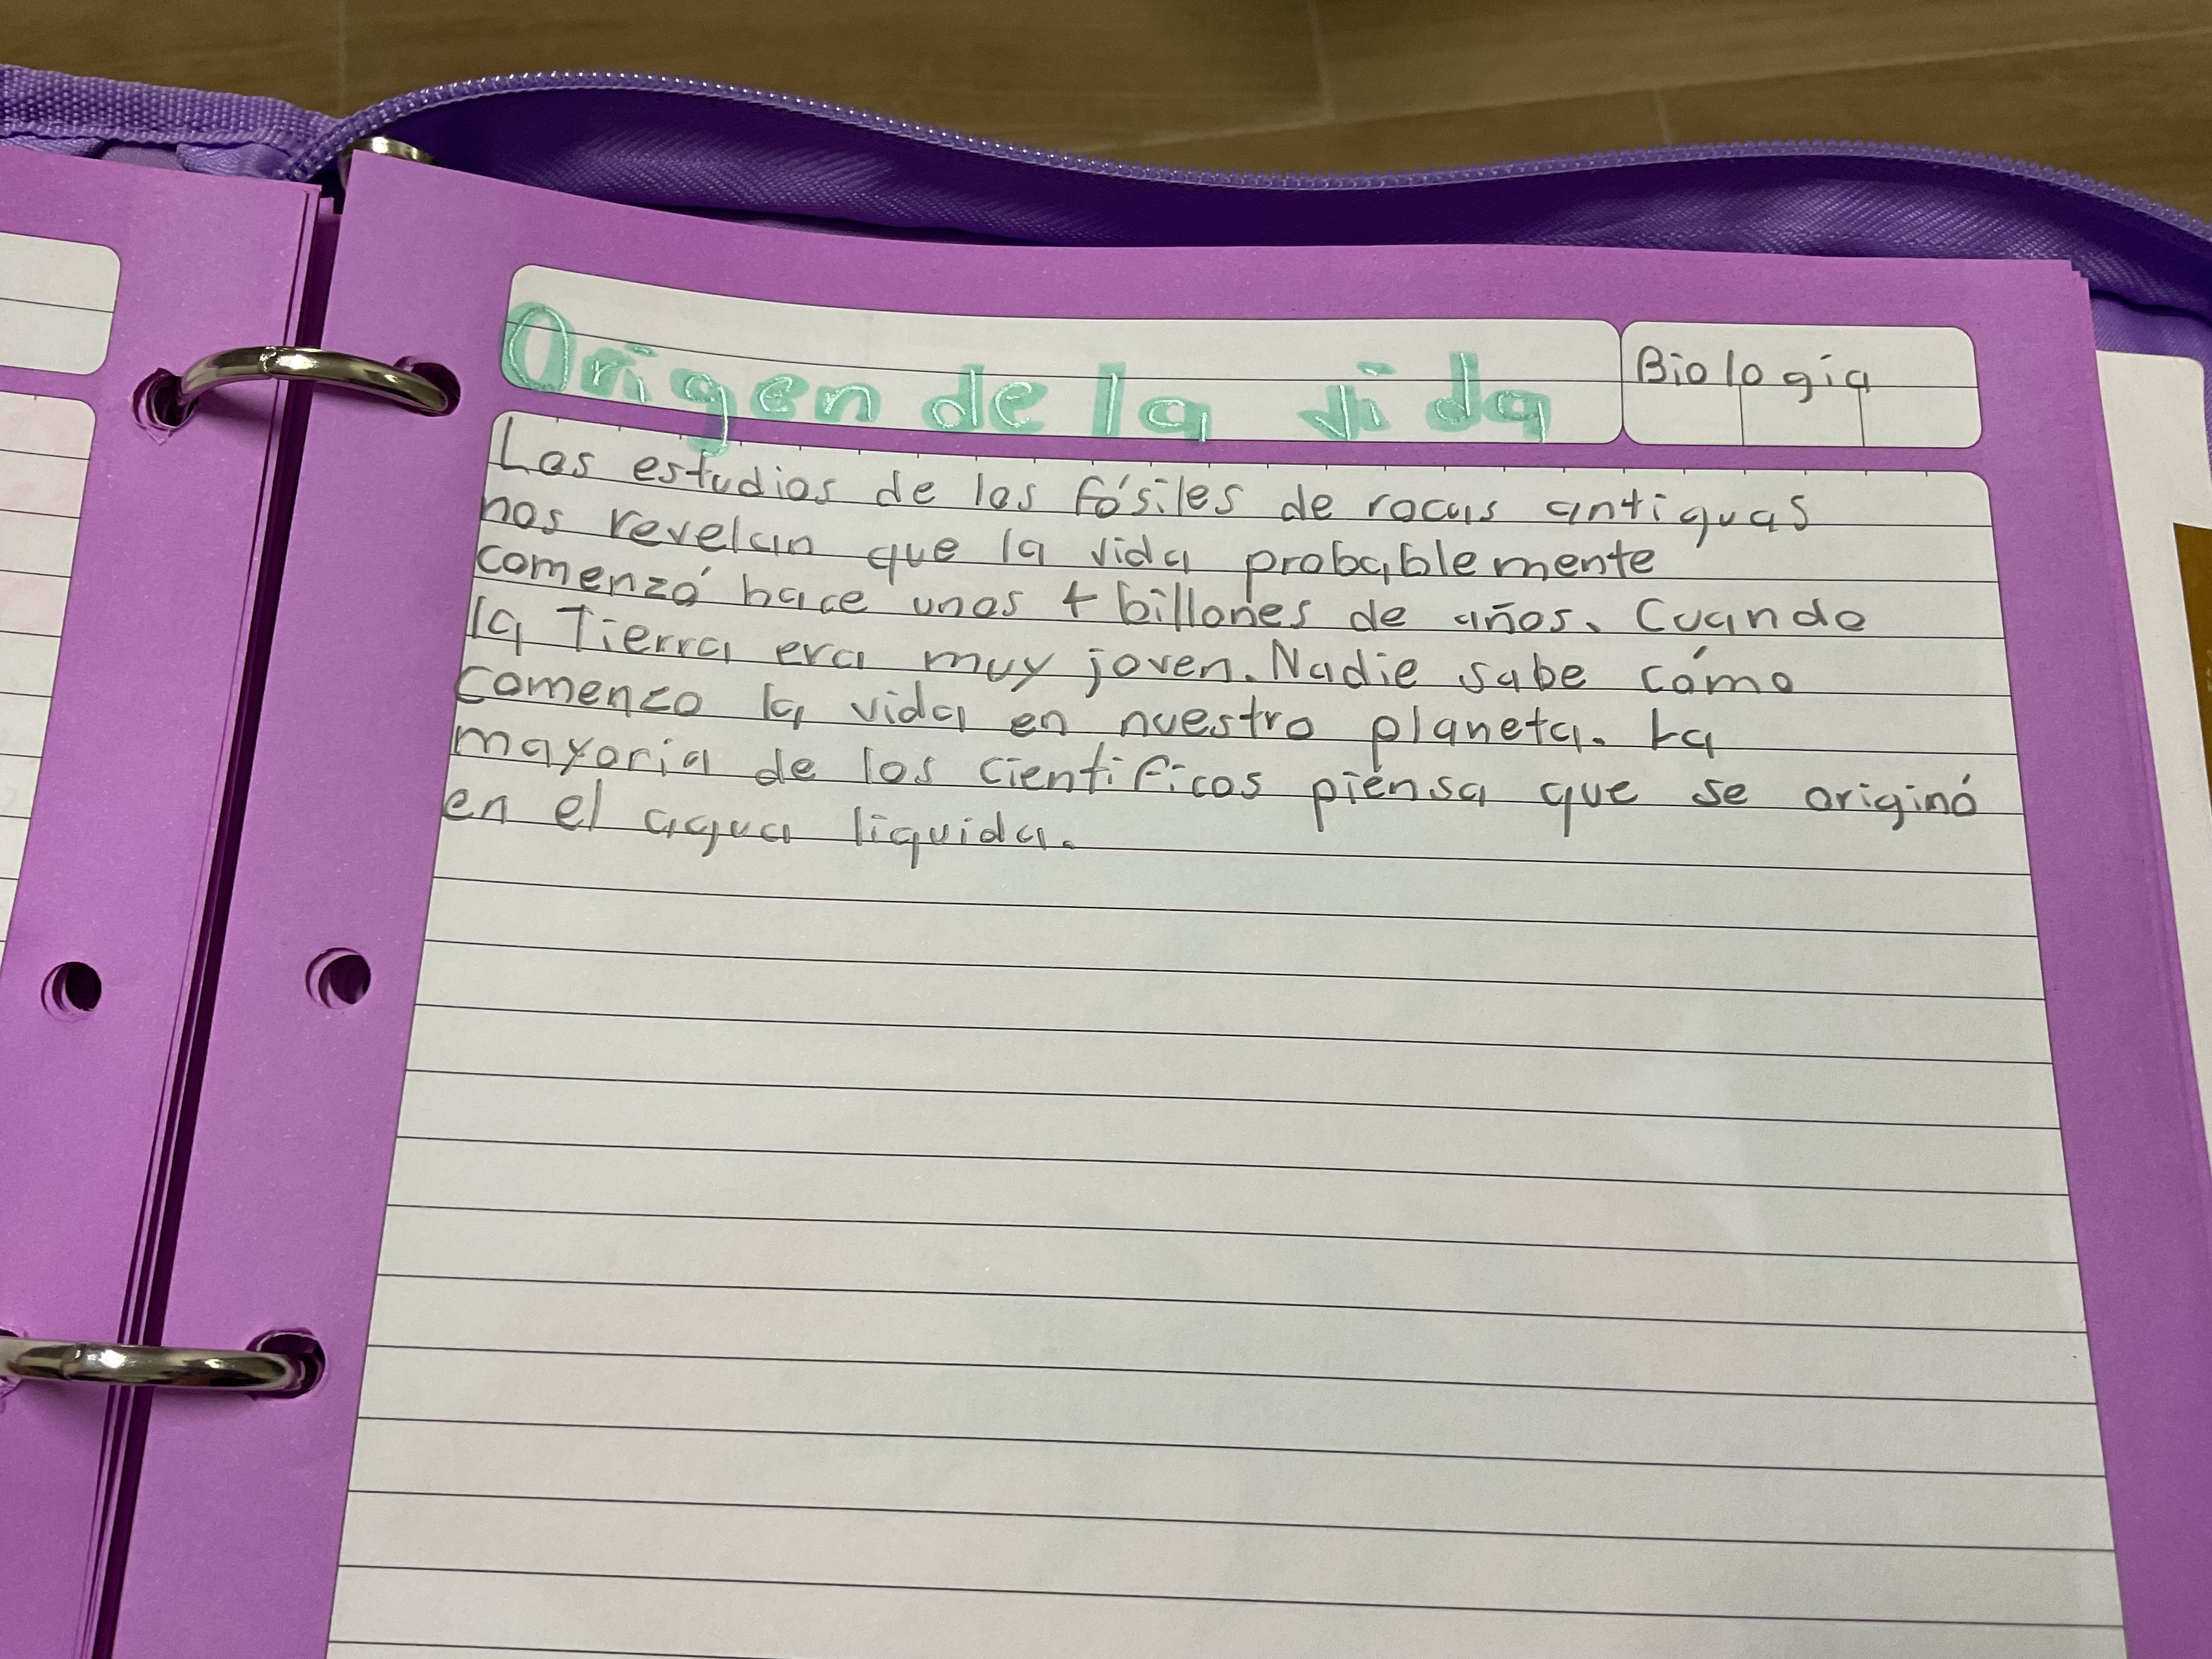 Origen de la vida
Biologia
Los estudios de los fósiles de rocas antiguas
nos revelan que la vida probablemente
comenzó hace unos 4 billones de años. Cuando
la Tierra era muy joven. Nadie sabe cómo
comenzo la vida en nuestro planeta. La
mayoria de los cientificos piensa que se originó
en el agua liquida.